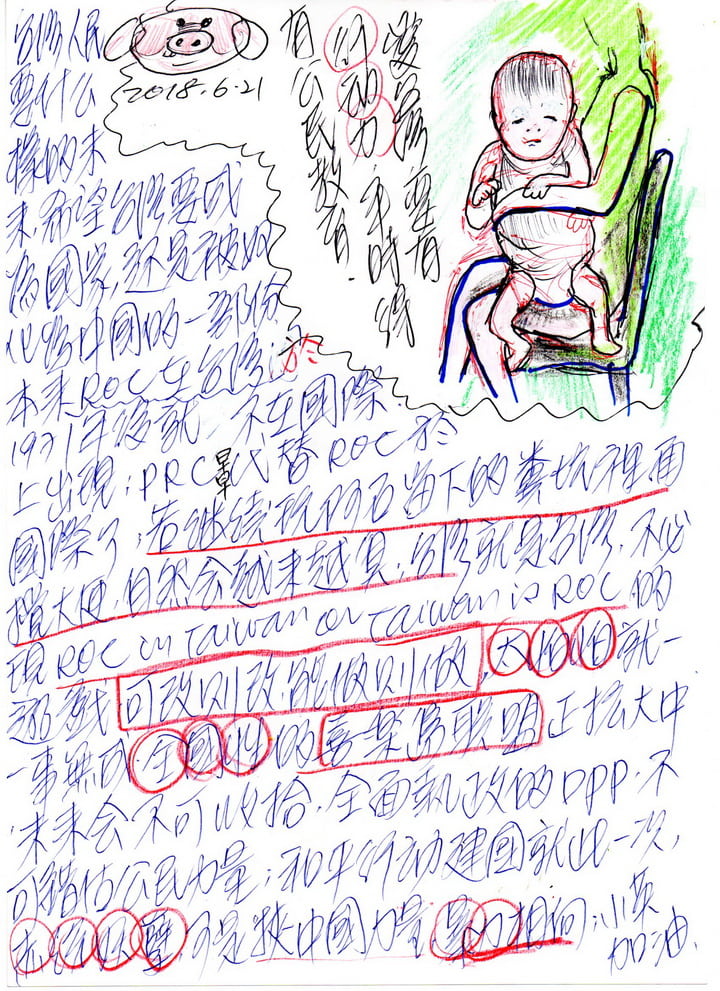 2018.6.21
愛台灣要有
行动力.平時
有公民教育.
台灣人民
要什么
樣的未
來,希望台灣要成
為國家,还是被奴
化為中國的一部份
本来ROC在台灣,於
1971年後就不在國際
上出現;PRC早代替ROC於
國際了;若继续玩阿石留下的糞坑裡面
攪大便,自然会越来越臭;台灣就是台灣,不必
現ROC in Taiwan or Taiwan is ROC的
遊戲可改则改能做则做,太怕怕就一
一事無成.全國性的喜樂島联盟正擴大中
未来会不可收拾.全面執政的DPP,不
可錯估公民力量;和平行动建國就此一次,
可是挾中國力量暴力相向;小英
加油.